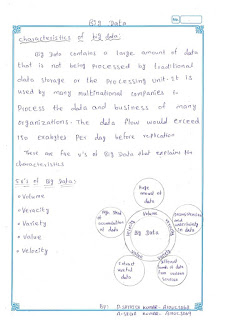 Big Data
No:
Characteristics of big data:
Big Data contains a large amount of data
that is not being processed by traditional
data storage or the processing unit. It is
used by many multinational companies to
process the data and business of many
organizations. The data flow would exceed
150 exabytes per day before replication
There are five v's of Big Data that explains the
characteristics
5 V's of Big Data:
• Volume
• Veracity
• Variety
• Value
• Velocity
Huge
amount of
data
High speed
accumulation
of data
Volume
Big Data
inconsistencies
and
uncertainty
in data
Extract
useful
data
Different
formats of data
from various
sources
By: